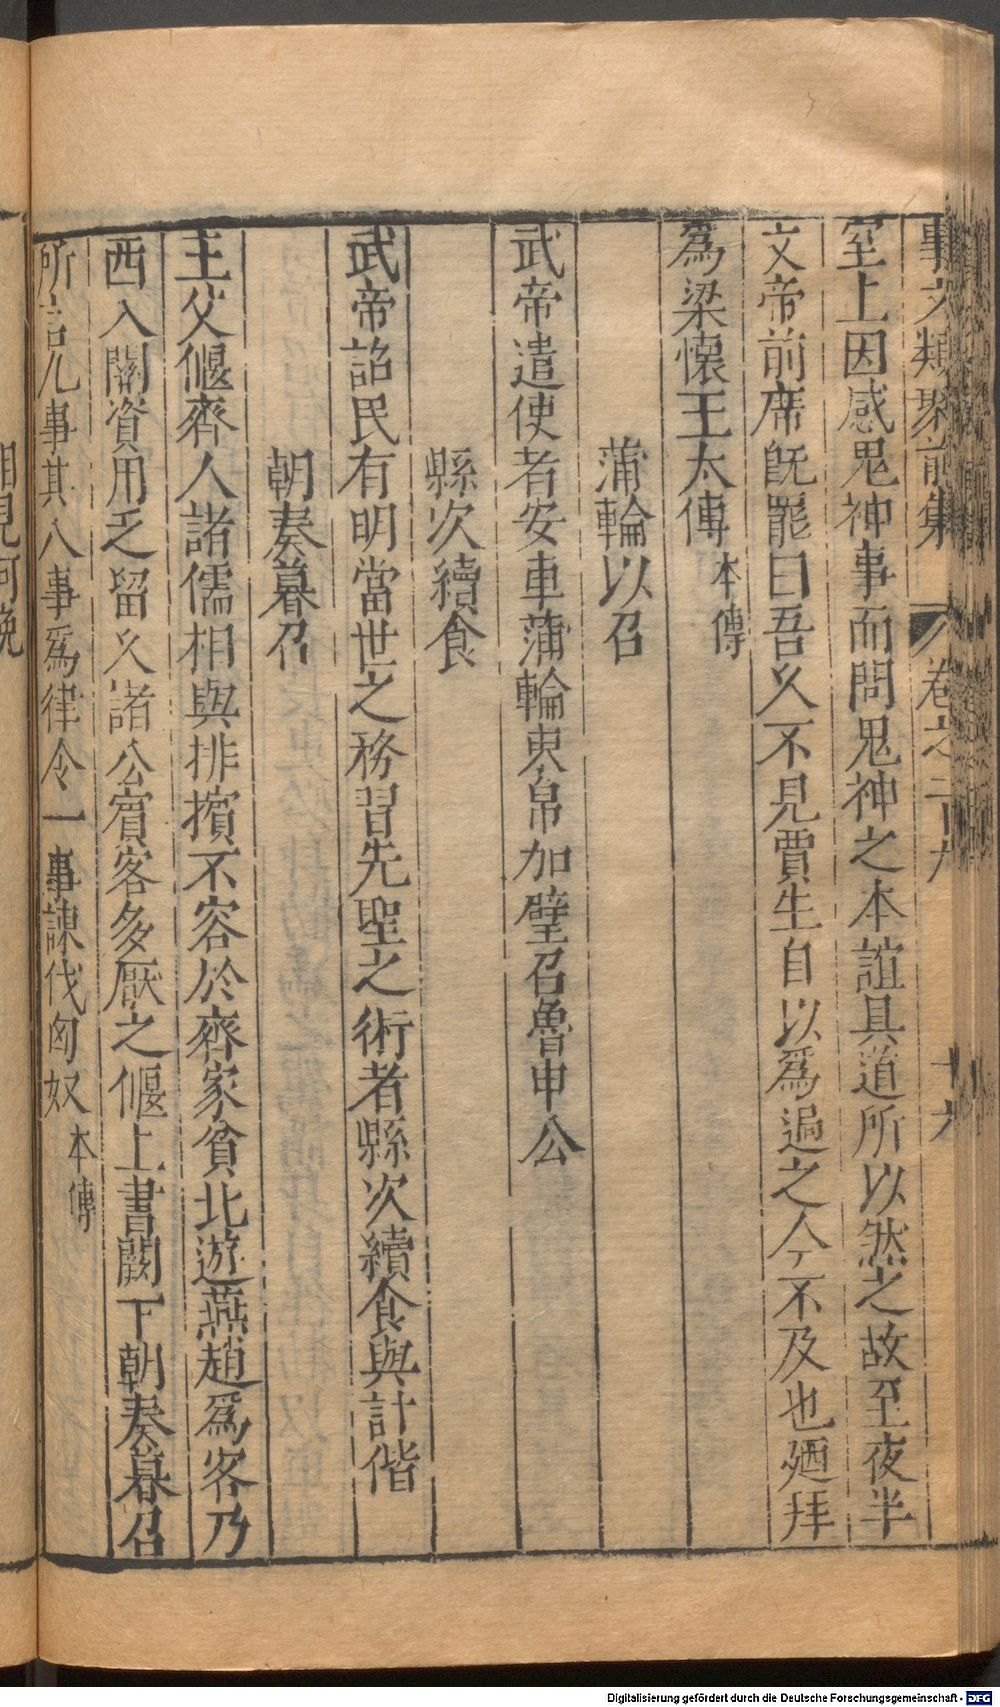 事文類聚前集 卷之二十九 十六
室上因感鬼神事而問鬼神之本誼具道所以然之故至夜半
文帝前席旣罷曰吾久不見賈生自以爲過之今不及也廼拜
爲梁懷王太傅本傳
蒲輪以召
武帝遣使者安車蒲輪束帛加璧召魯申公
縣次續食
武帝詔民有明當世之務習先聖之術者縣次續食與計偕
朝奏暮召
主父偃齊人諸儒相與排擯不容於齊家貧北遊燕趙爲客乃
西入關資用乏留久諸公賓客多厭之偃上書闕下朝奏暮召
所言九事其八事爲律令一事諫伐匈奴本傳
相見何晚
Digitalisierung gefördert durch die Deutsche Forschungsgemeinschaft - DFG